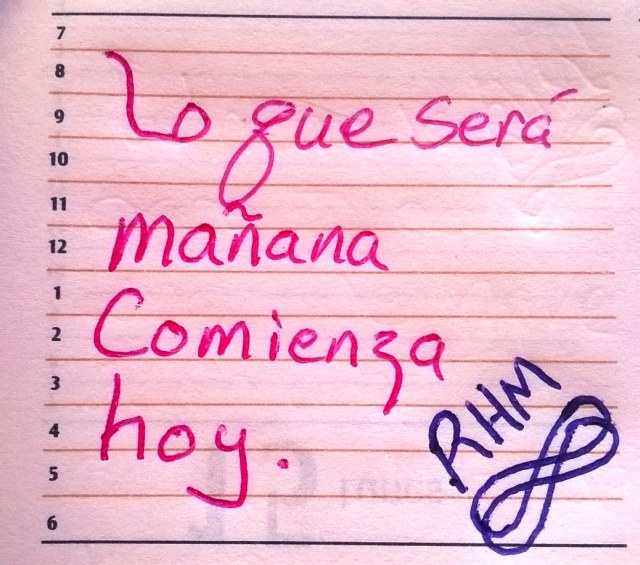 7
8
Lo que será
9
10
11
mañana
12
1
Comienza
2
3
hoy.
4
RHM
5
6